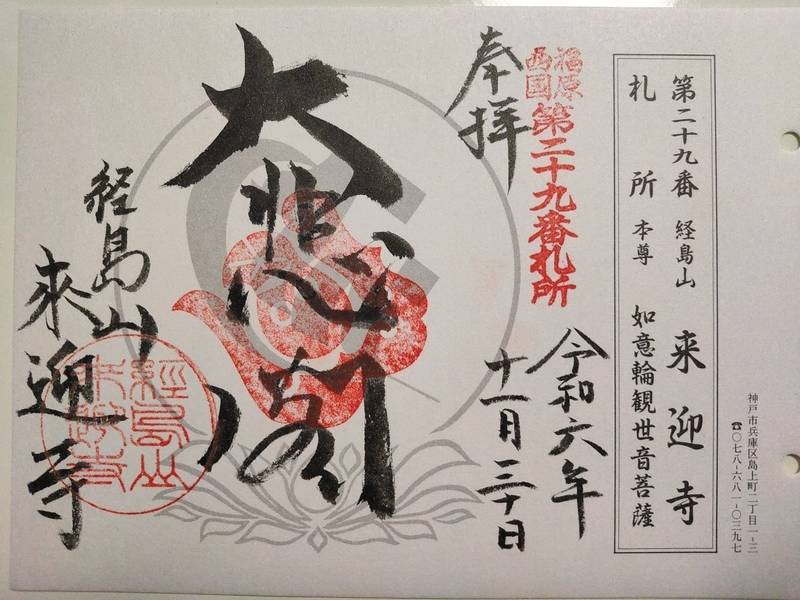 神戸市兵庫区島上町二丁目一-三
☎〇七八-六八一-〇三九七
第二十九番 経島山 来迎寺
札所 本尊 如意輪観世音菩薩
福原
西國
第二十九番札所
奉拝
令和六年
十一月三十日
大悲閣
経島山
來迎寺
經島山